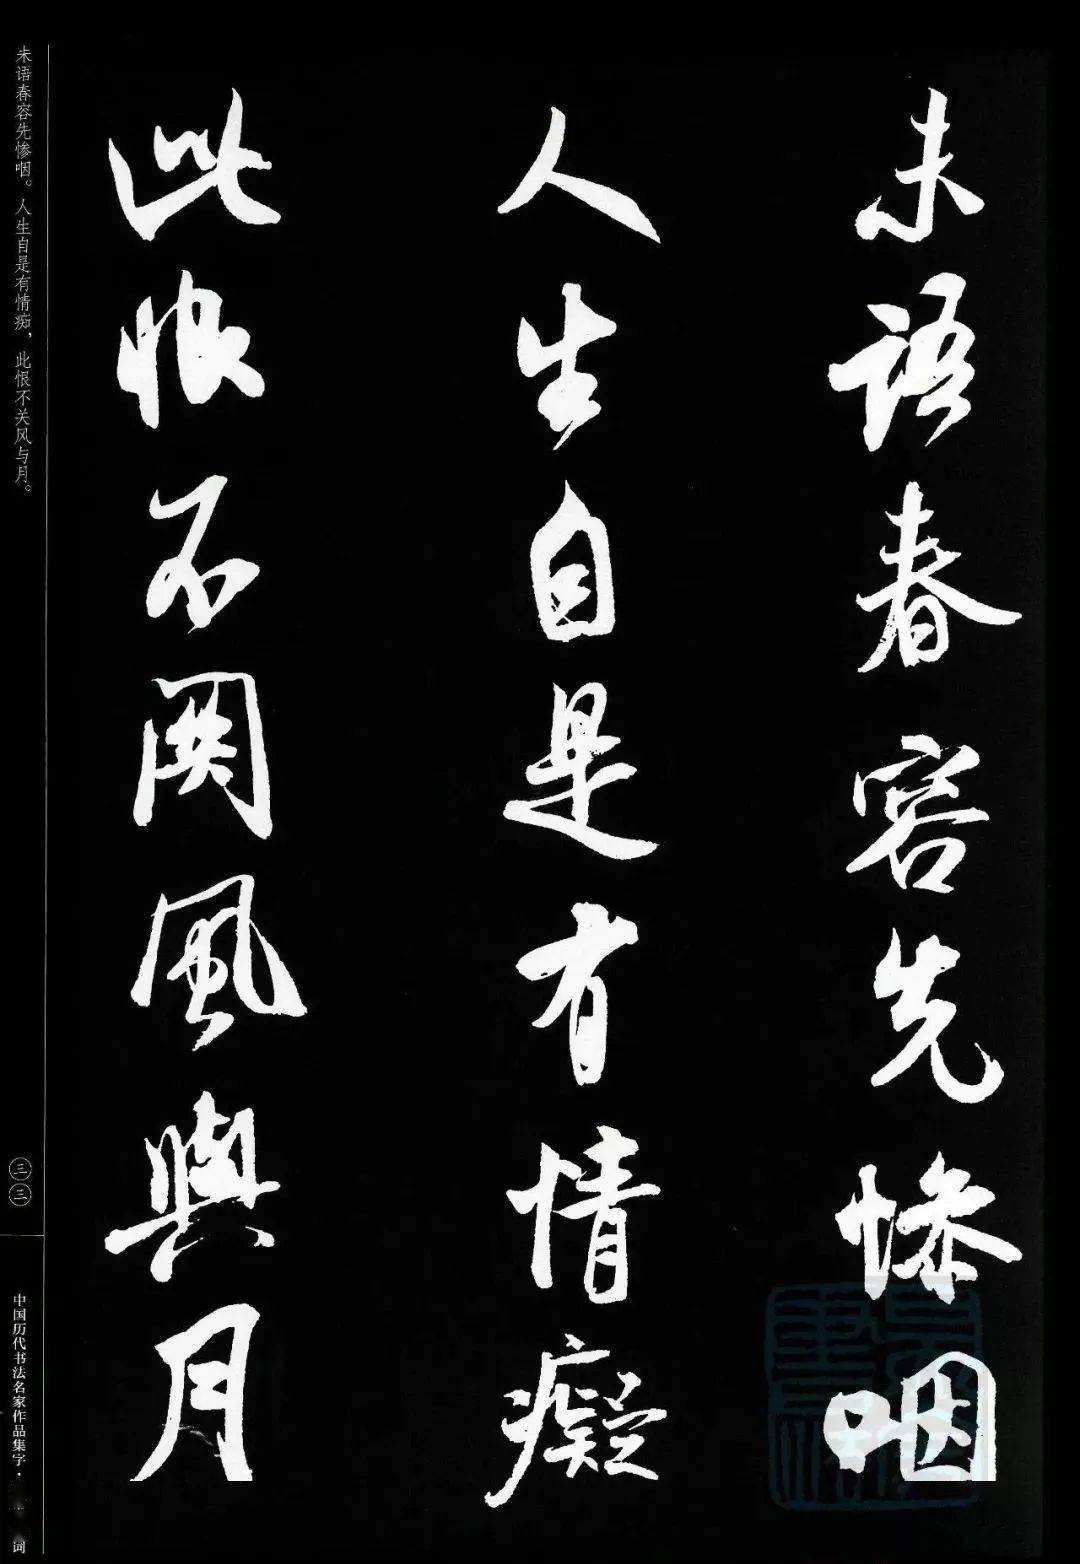 未語春容先惨咽
人生自是有情癡
此恨不関風與月
未语春容先惨咽。人生自是有情痴，此恨不关风与月。
三三
中国历代书法名家作品集字·
词